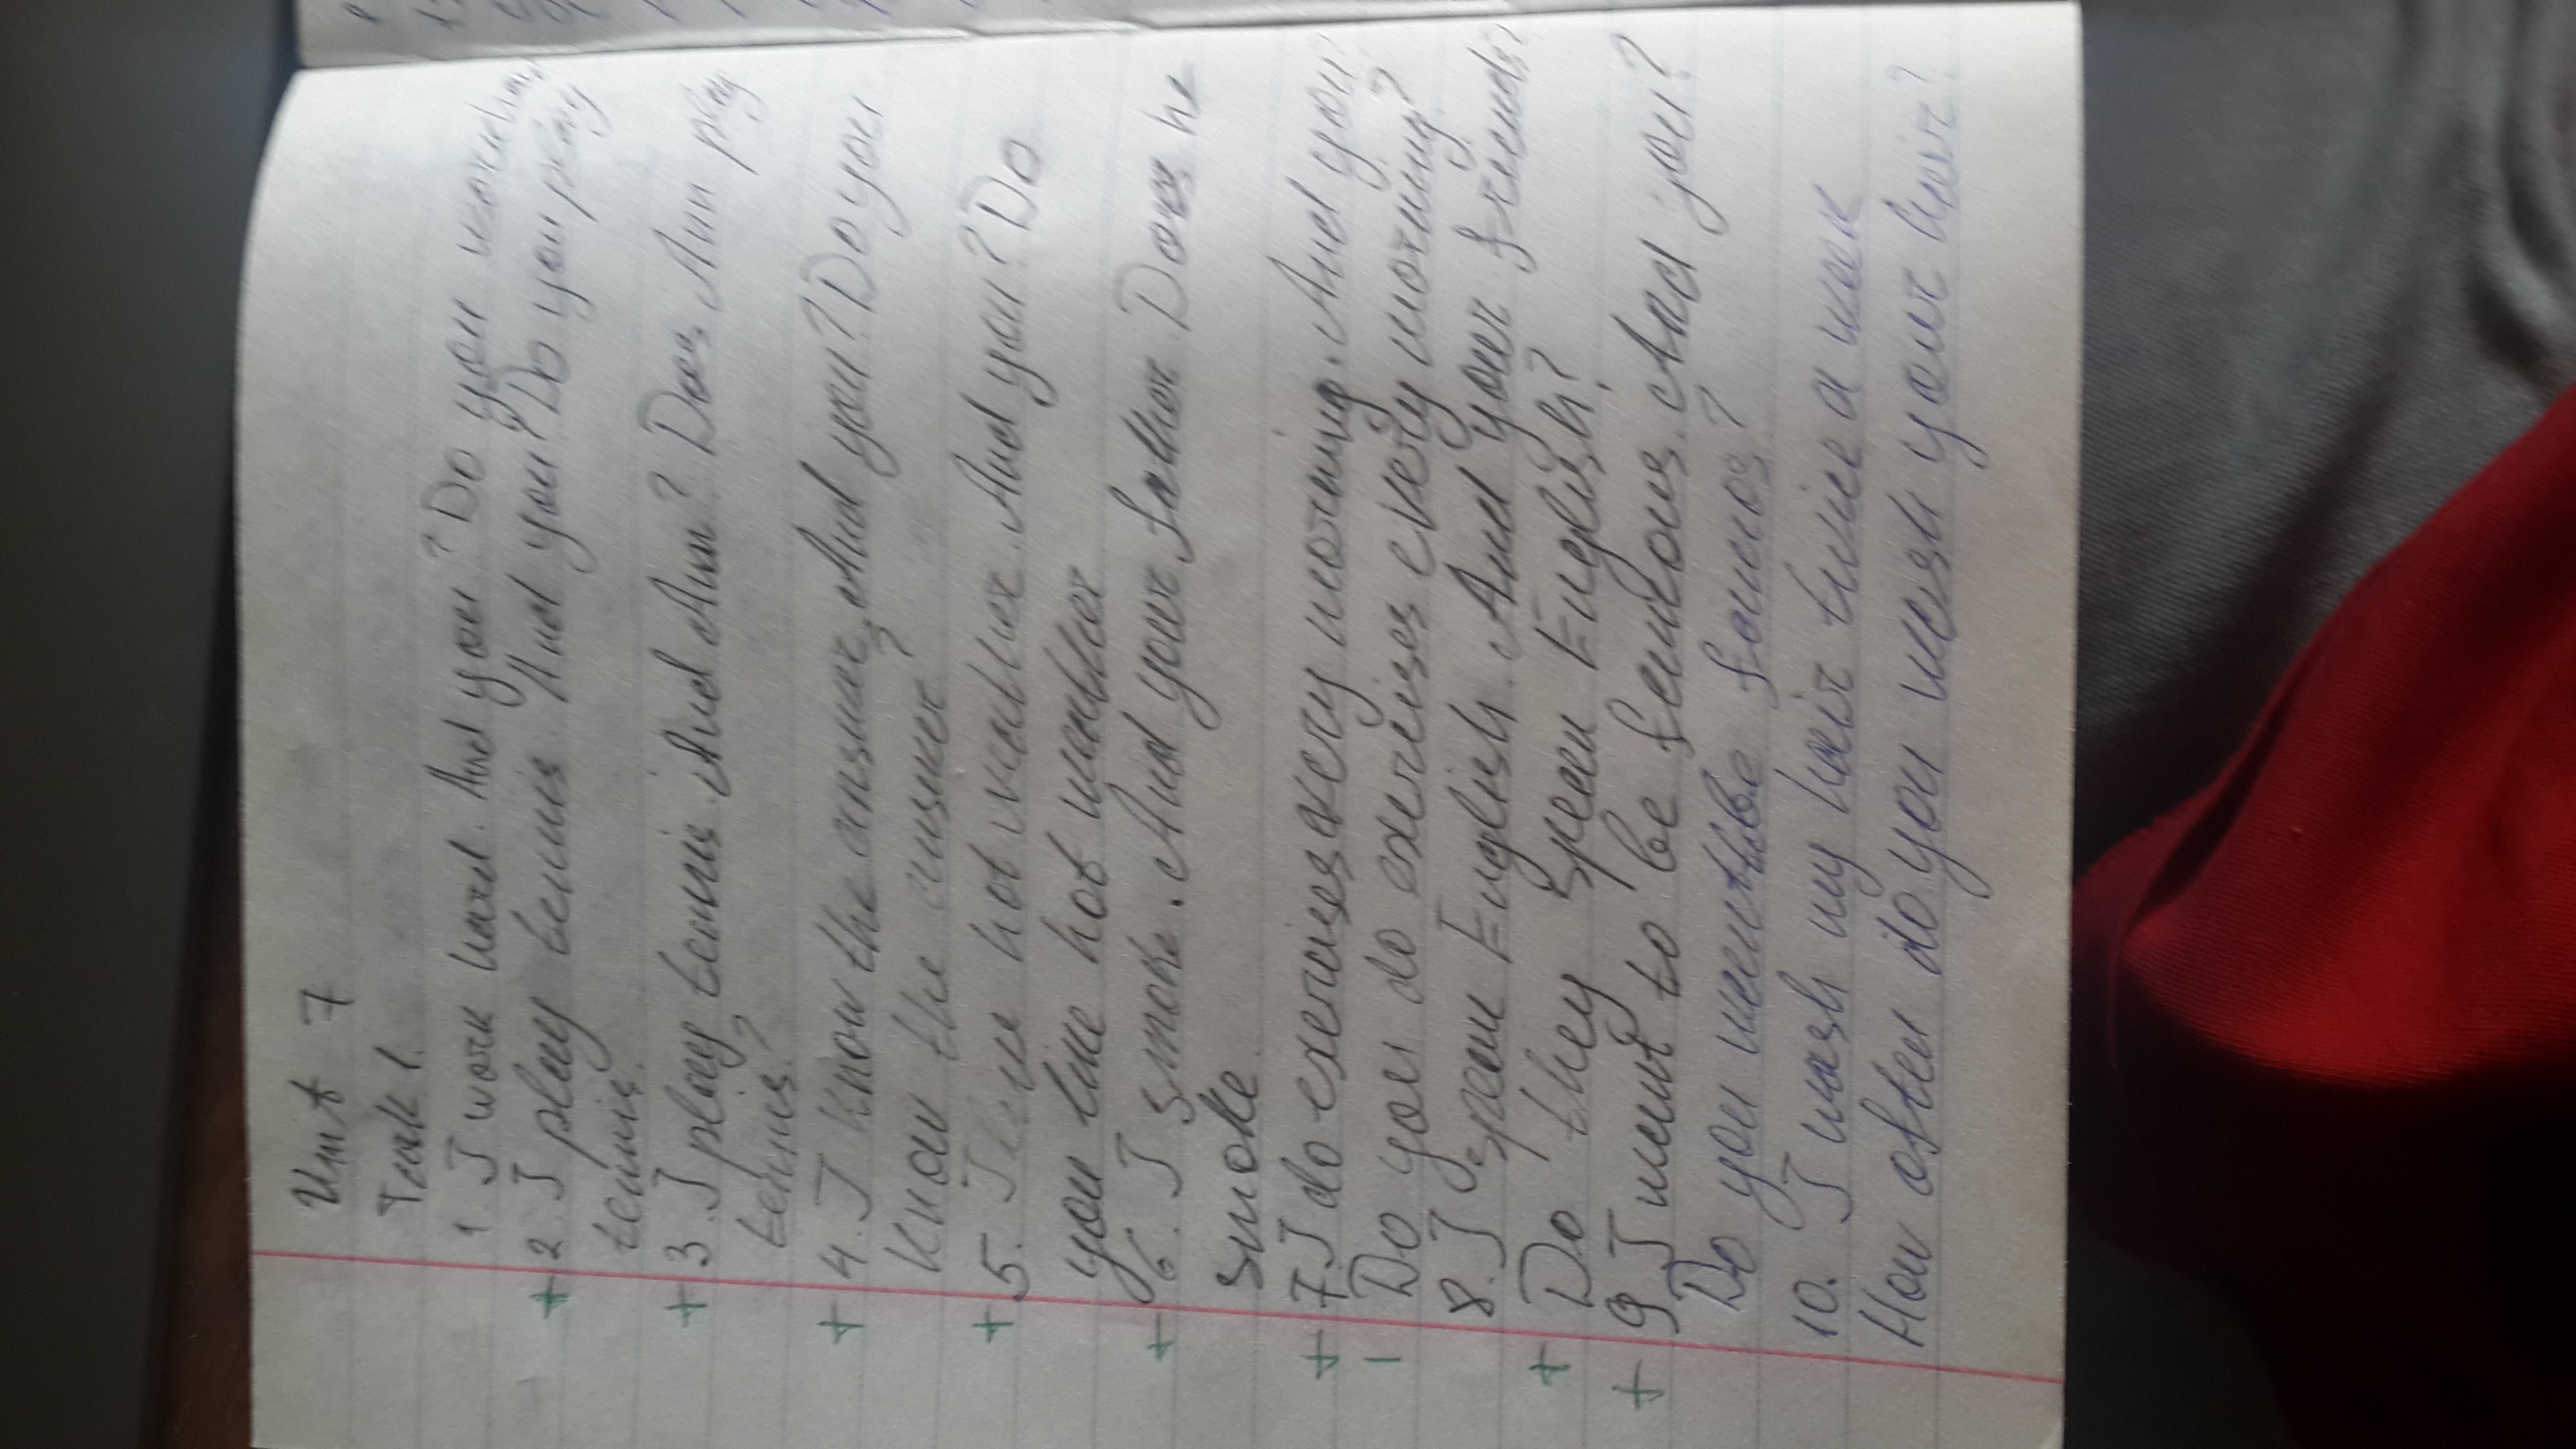 Unit 7
Task 1.
1. I work hard. And you? Do you work hard
+ 2 I play tennis. And you? Do you play
tennis.
+ 3. I play tennis. And Ann? Does Ann play
tennis?
+ 4. I know the answer. And you? Do you
know the answer?
+ 5. I like hot weather. And you? Do
you like hot weather
+ 6. I smoke. And your father Does he
smoke.
+ 7 I do exercises every morning. And you?
- Do you do exercises every morning?
8. I speak English. And your friends?
+ Do they speak English?
+ 9 I want to be famous. And you?
Do you want to be famos?
10. I wash my hair twice a week
How often do you wash your hair?